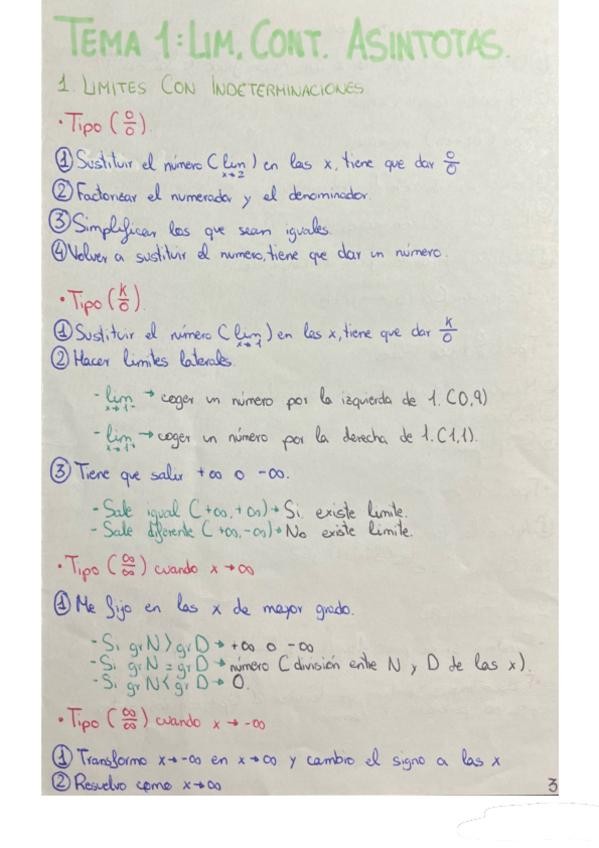 TEMA 1: LIM, CONT. ASINTOTAS.
1. LIMITES CON INDETERMINACIONES
· Tipo (0/0).
① Sustituir el número (lim x→2) en las x, tiene que dar 0/0
② Factorizar el numerador y el denominador.
③ Simplificar los que sean iguales.
④ Volver a sustituir el numero, tiene que dar un número.
· Tipo (K/0).
① Sustituir el número (lim x→1) en las x, tiene que dar K/0
② Hacer limites laterales.
- lim x→1⁻ → coger un número por la izquierda de 1. (0,9)
- lim x→1⁺ → coger un número por la derecha de 1. (1,1).
③ Tiene que salir +∞ o -∞.
- Sale igual (+∞, +∞) → Si existe limite.
- Sale diferente (+∞, -∞) → No existe limite.
· Tipo (∞/∞) cuando x→∞
① Me fijo en las x de mayor grado.
- Si grN > grD → +∞ o -∞
- Si grN = grD → número (división entre N y D de las x).
- Si grN < grD → 0.
· Tipo (∞/∞) cuando x→-∞
① Transformo x→-∞ en x→∞ y cambio el signo a las x
② Resuelvo como x→∞
3